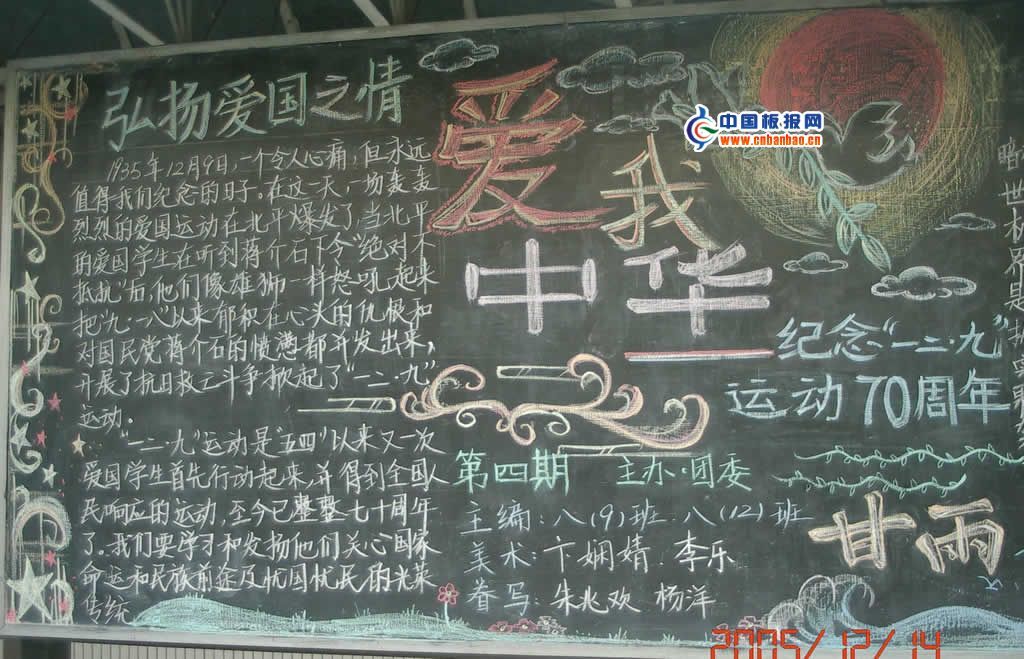 弘扬爱国之情
1935年12月9日,一个令人心痛,但永远
值得我们纪念的日子。在这一天,一场轰轰
烈烈的爱国运动在北平爆发了,当北平
的爱国学生在听到蒋介石下令"绝对不
抵抗"后,他们像雄狮一样怒吼起来
把"九·一八"以来郁积在心头的仇恨和
对国民党蒋介石的愤懑都并发出来,
开展了抗日救亡斗争掀起了"一二·九"
运动.
"一二·九"运动是"五四"以来又一次
爱国学生首先行动起来,并得到全国人
民响应的运动,至今已整整七十周年
了。我们要学习和发扬他们关心国家
命运和民族前途及忧国忧民的光荣
传统
爱我
中华
中国板报网
www.cnbanbao.cn
纪念"一二·九"
运动70周年
第四期 主办·团委
主编:八(9)班.八(12)班
美术:卞娴婧.李乐
眷写:朱兆欢 杨洋
甘雨
2005/12/14